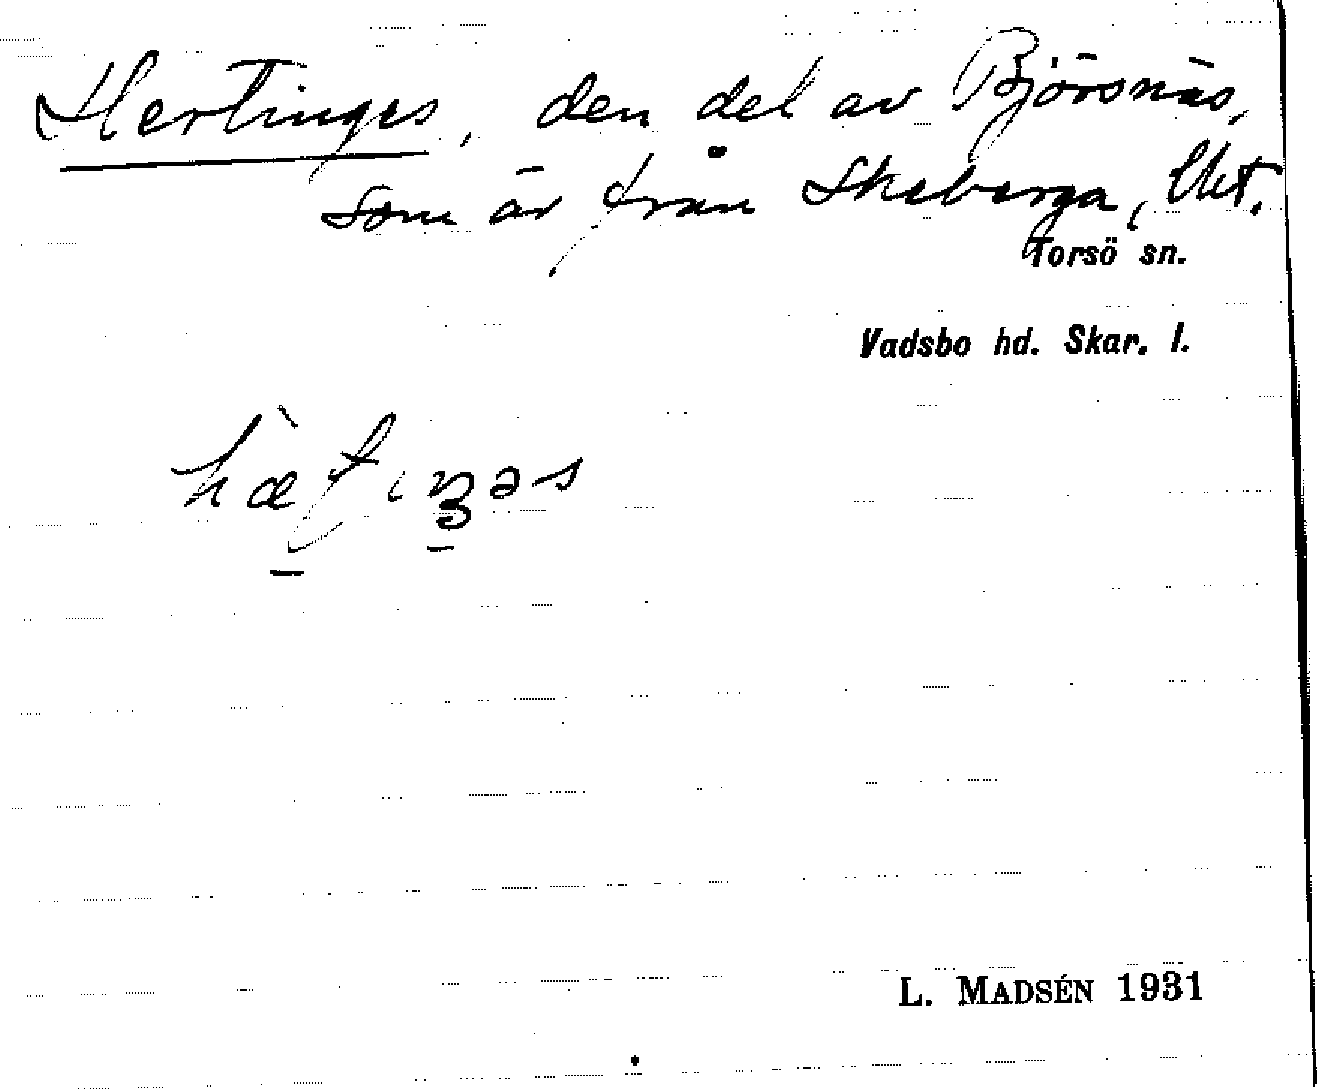 Hertinges, den del av Björsnäs,
som är från Skeberga,
Torsö sn.
Vadsbo hd. Skar. l.
L. MADSÉN 1931